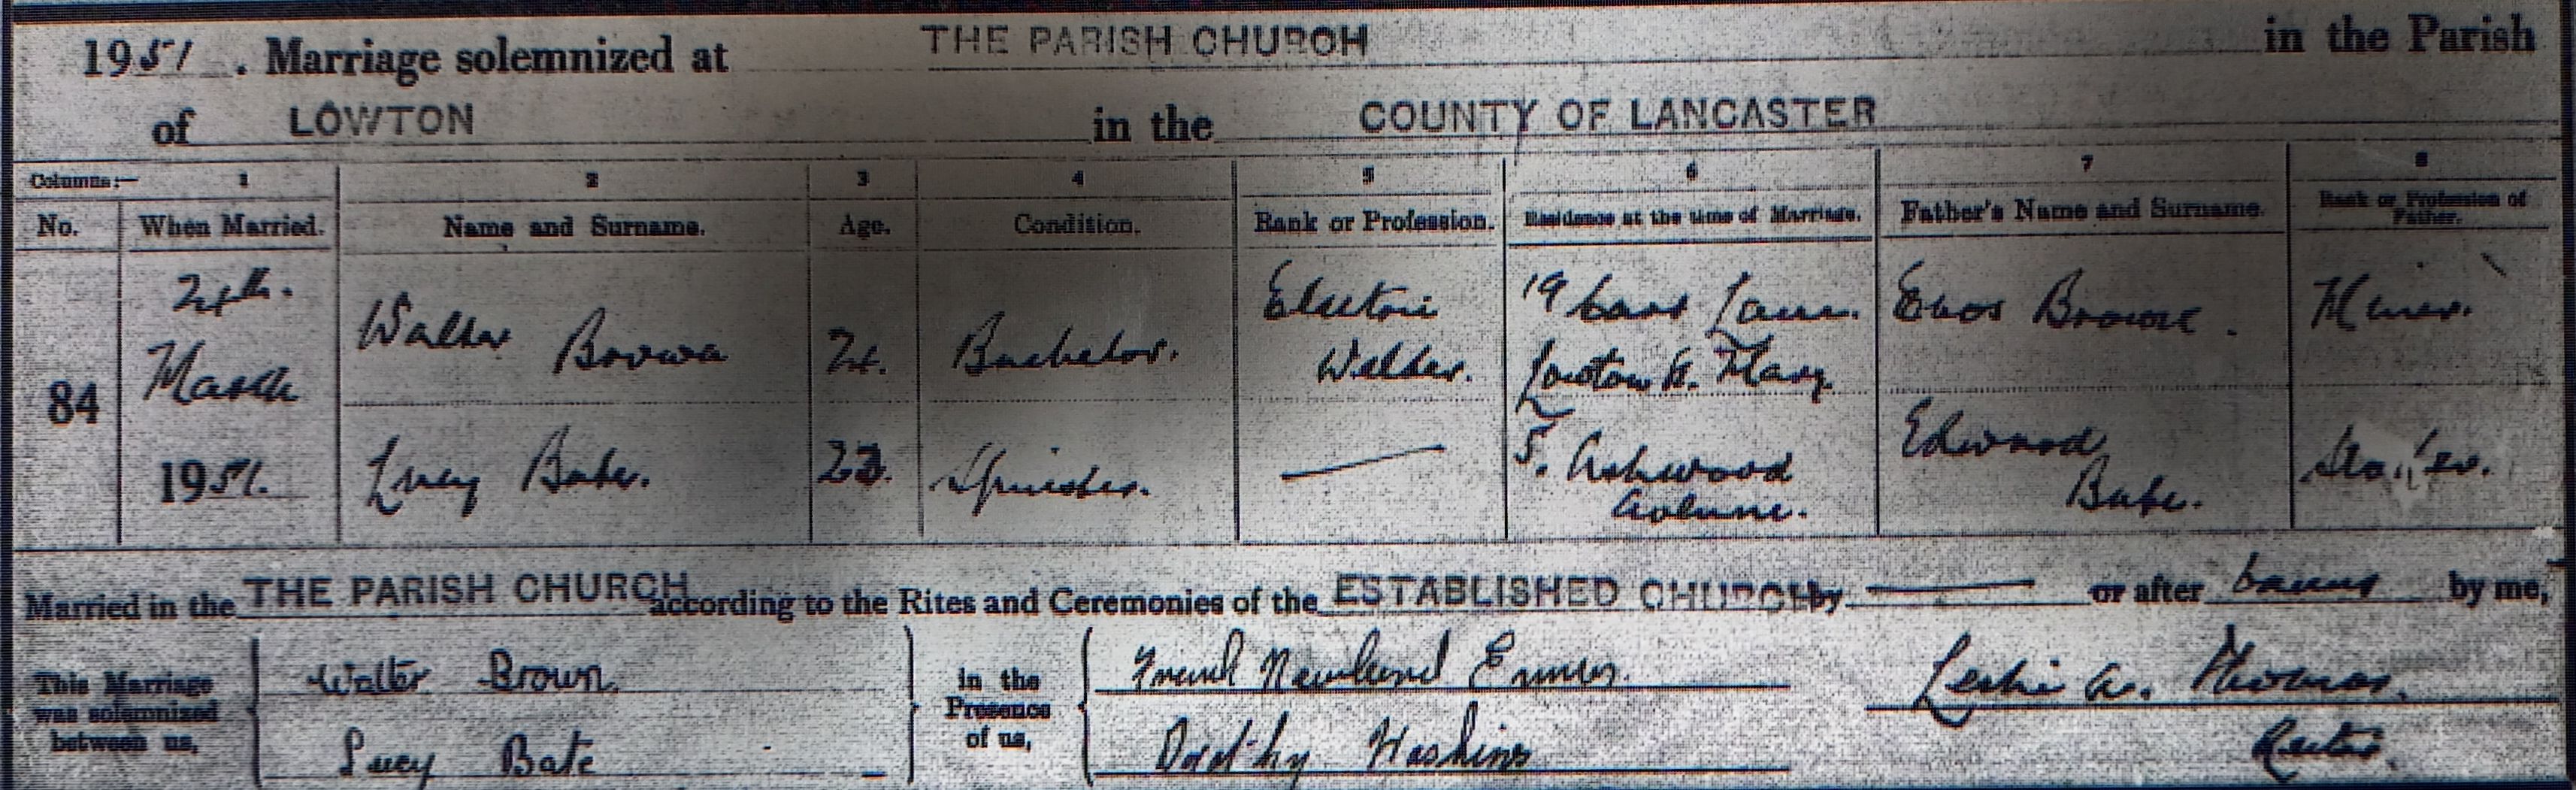 1951. Marriage solemnized at THE PARISH CHURCH in the Parish
of LOWTON in the COUNTY OF LANCASTER
Columns:— 1 2 3 4 5 6 7 8
No. When Married. Name and Surname. Age. Condition. Rank or Profession. Residence at the time of Marriage. Father's Name and Surname. Rank or Profession of Father.
84 24th. March 1951.
Walter Brown 24. Bachelor. Electric Welder. 19 Lane Lowton St. Mary Brown. Miner.
Lucy Bate. Spinster. — 5. Ashwood Avenue. Edward Bate.
Married in the THE PARISH CHURCH according to the Rites and Ceremonies of the ESTABLISHED CHURCH by — or after banns by me,
This Marriage was solemnized between us,
Walter Brown.
Lucy Bate
in the Presence of us,
Dorothy Haskins
Leslie A. Thomas.
Rector.